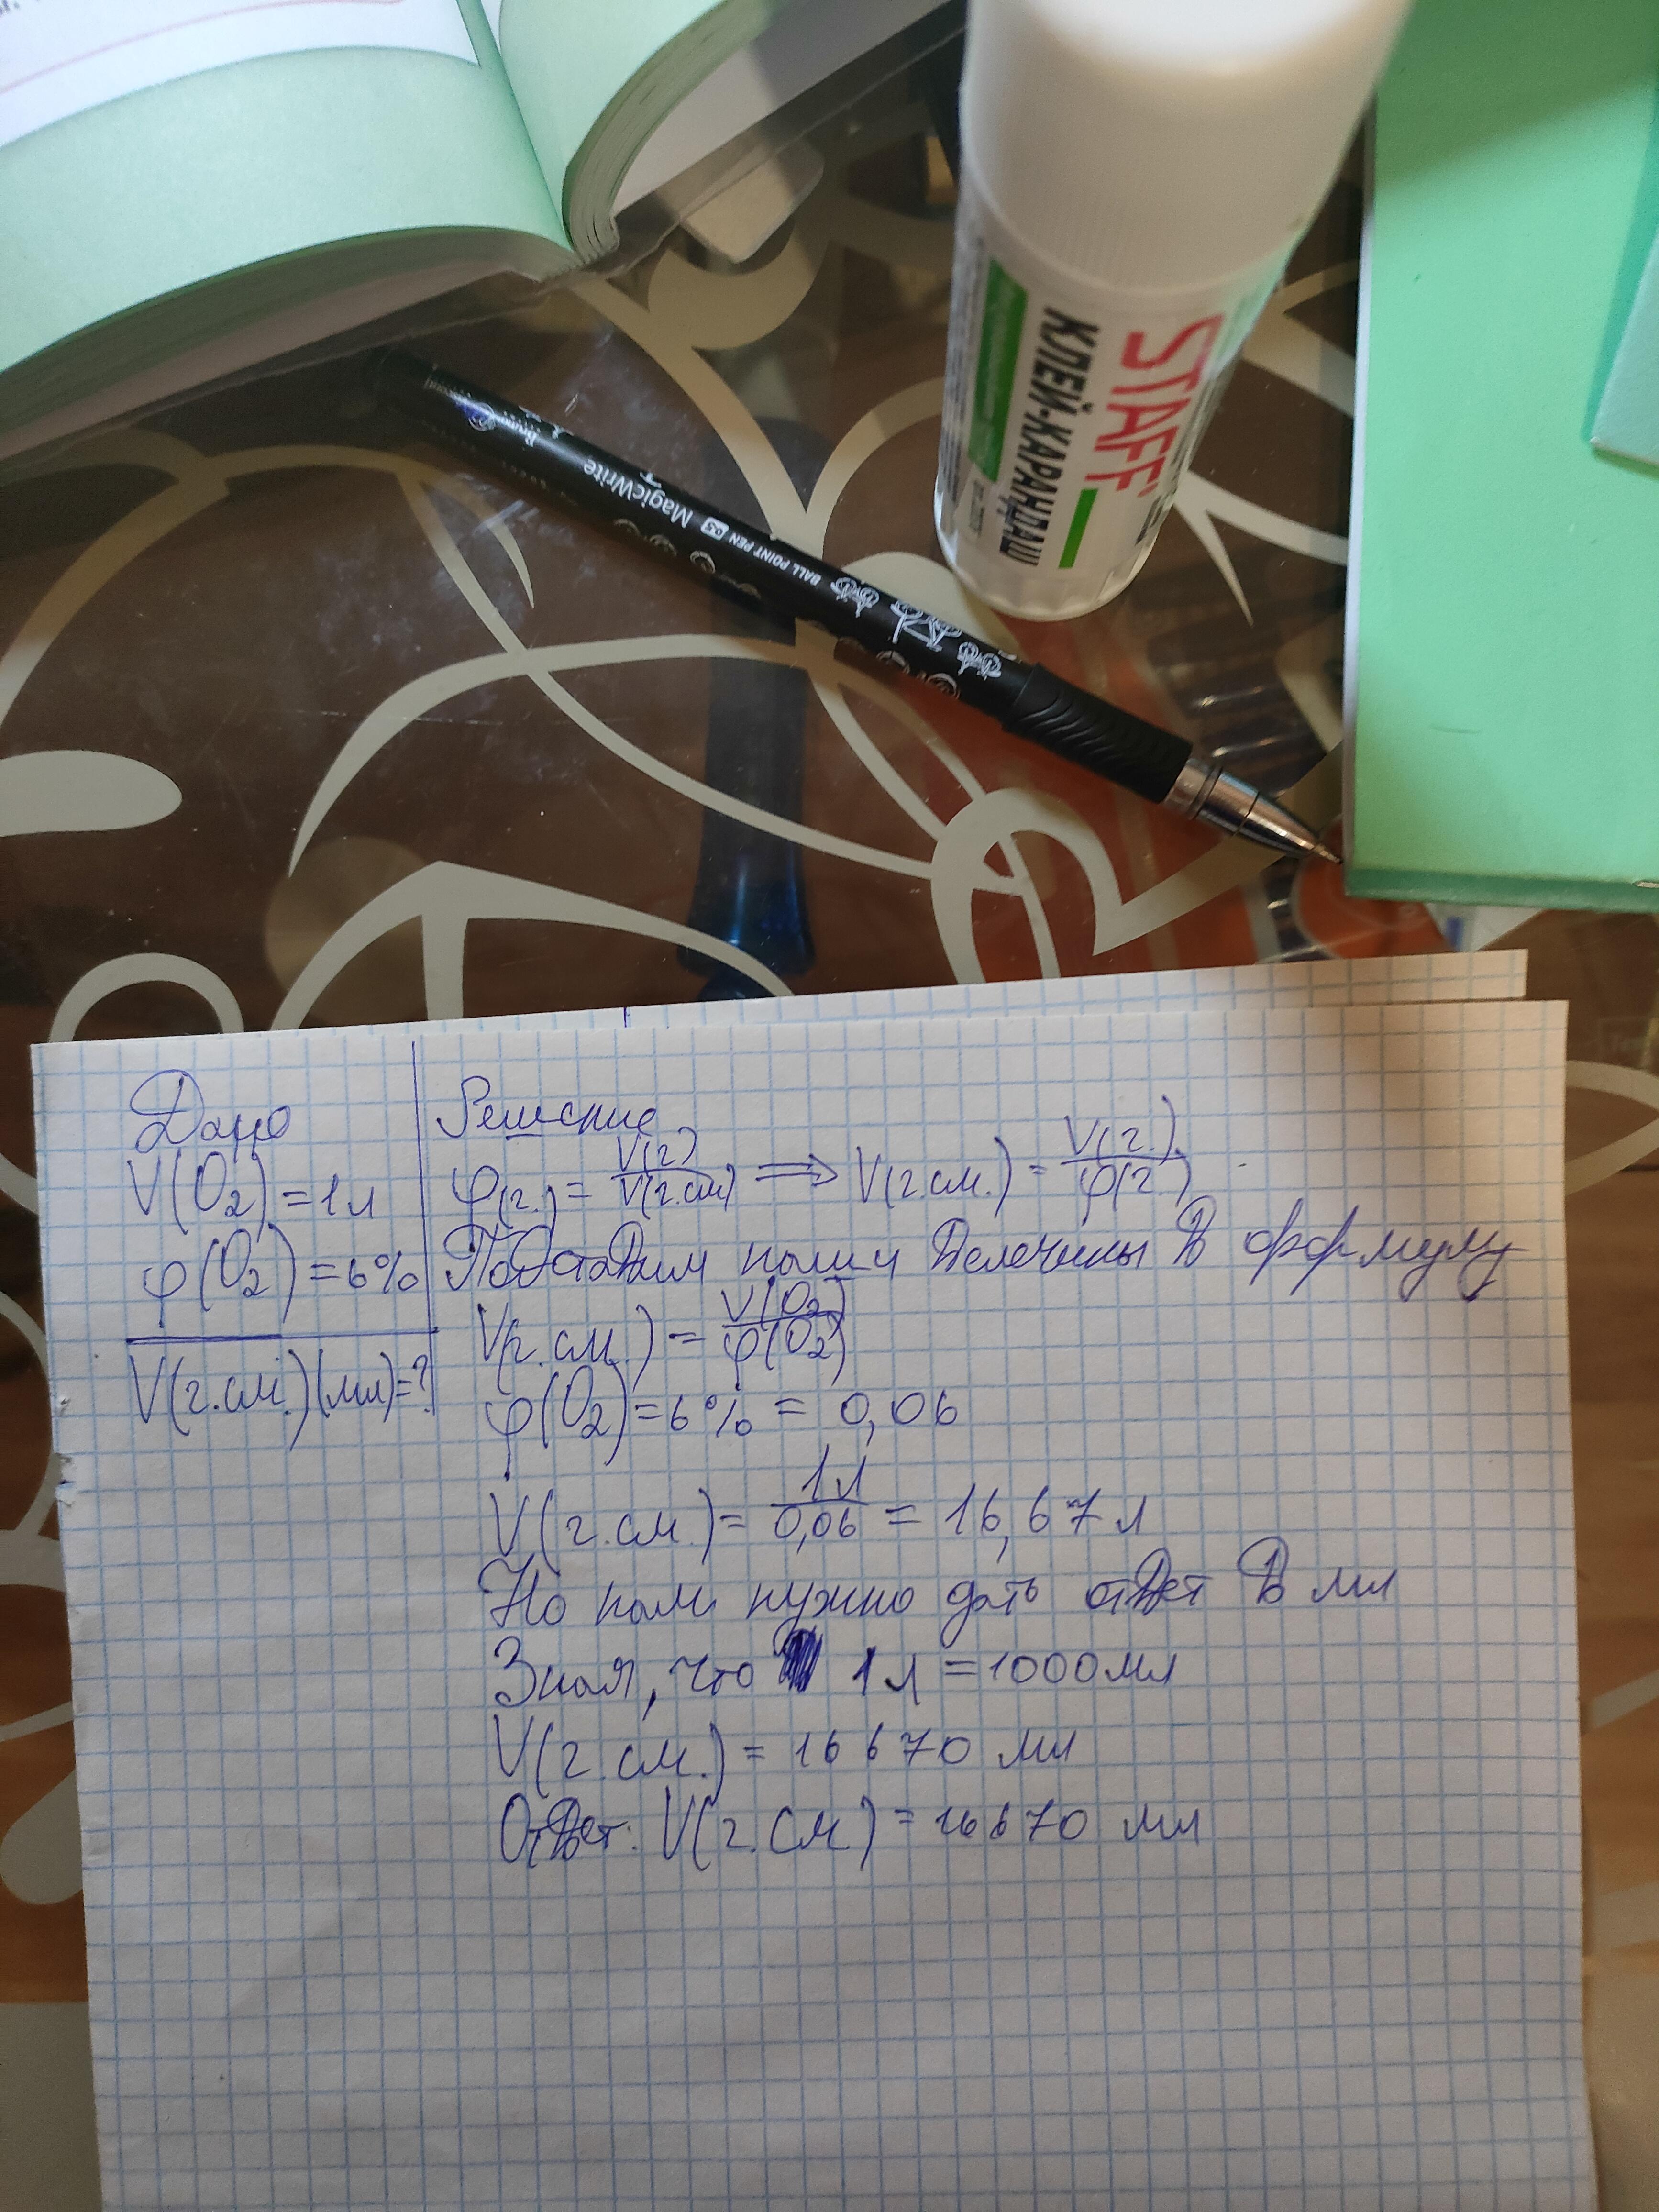 STAFF
КЛЕЙ-КАРАНДАШ
Bruno
MagicWrite
BALL POINT PEN 0.5
Дано
V(O₂) = 1 л
φ(O₂) = 6%
V(г.см.)(мл)=?
Решение
φ(г.) = V(г)/V(г.см) ⟹ V(г.см.) = V(г.)/φ(г.)
Подставим наши велечины в формулу
V(г.см.) = V(O₂)/φ(O₂)
φ(O₂) = 6% = 0,06
V(г.см.) = 1л/0,06 = 16,67 л
Но нам нужно дать ответ в мл
Зная, что 1 л = 1000 мл
V(г.см.) = 16 670 мл
Ответ: V(г.см) = 16670 мл